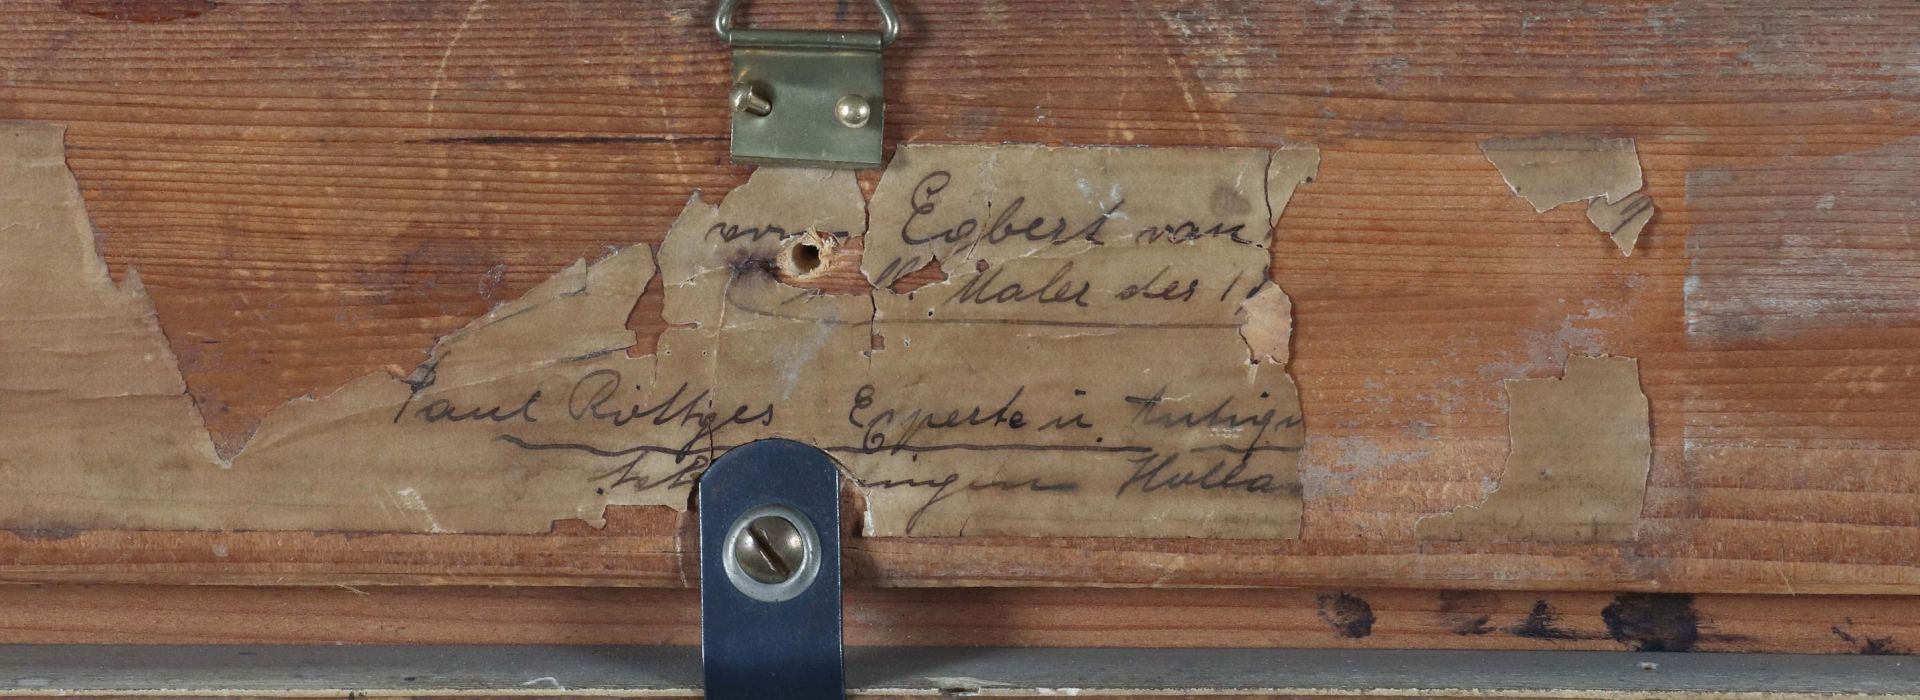 von Egbert van
Holl. Maler des 1
Paul Röttges Experte u. Antiqu
ingen Holla